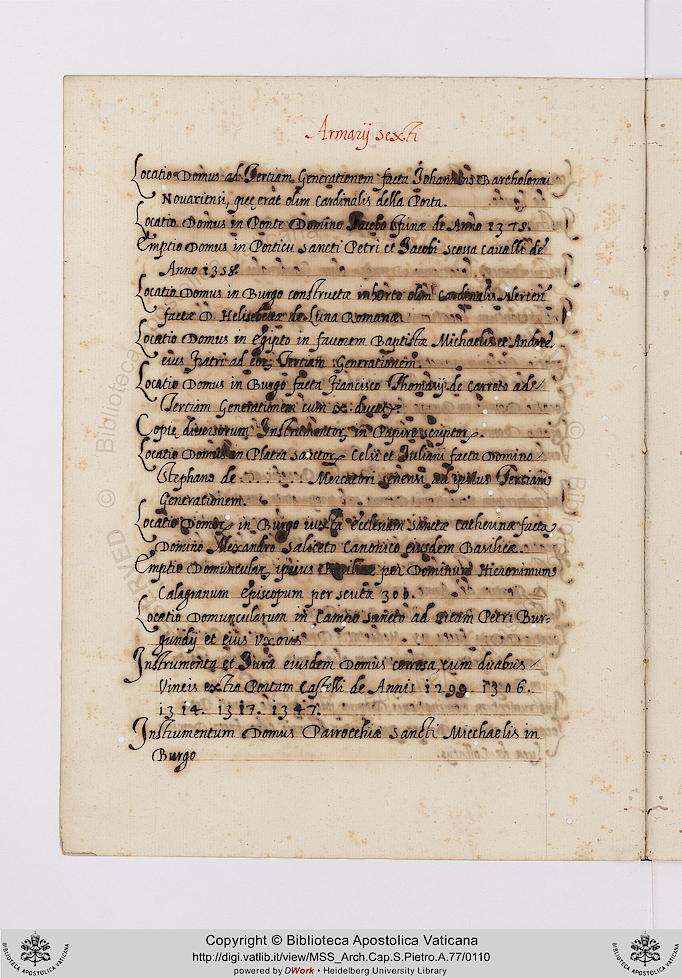 Armarij sexti
Locatio Domus ad Tertiam Generationem facta Johanni Bartholomei
Novariensi, quę erat olim Cardinalis della Porta.
Locatio Domus in Ponte Domino Jacobo de Anno 1375.
Emptio Domus in Porticu sancti Petri et Jacobi scossa cavalli de
Anno 1358.
Locatio Domus in Burgo constructæ in horto olim Cardinalis Alerien
factæ D. de Luna Romanæ.
Locatio Domus in Egipto in favorem Baptistæ Michaelis et Andreę
eius Fratri ad eor Tertiam Generationem.
Locatio Domus in Burgo facta Francisco Thomasij de Carreto ad
Tertiam Generationem cum x. ducat.
Copię diversorum Instrumentor in Papiro scriptor.
Locatio Domus in Platea sanctor Celsi et Juliani facta Domino
Stephano de ........ Mercatori senensi ad ipsius Tertiam
Generationem.
Locatio Domor in Burgo iuxta ecclesiam sanctæ Catherinæ facta
Domino Alexandro Saliceto Canonico eiusdem Basilicæ.
Emptio Domuncular ipsius Basilicæ per Dominum Hieronimum
Calagranum Episcopum per scuta 300.
Locatio Domuncularum in Campo sancto ad vitam Petri Bur=
gundij et eius Vxoris
Instrumenta et Jura eiusdem Domus cum duabus
Vineis extra Portam Castelli de Annis 1299. 1306.
1314. 1317. 1347.
Instrumentum Domus Parrocchiæ sancti Micchaelis in
Burgo
© Biblioteca
Copyright © Biblioteca Apostolica Vaticana
http://digi.vatlib.it/view/MSS_Arch.Cap.S.Pietro.A.77/0110
powered by DWork • Heidelberg University Library
BIBLIOTECA APOSTOLICA VATICANA
BIBLIOTECA APOSTOLICA VATICANA